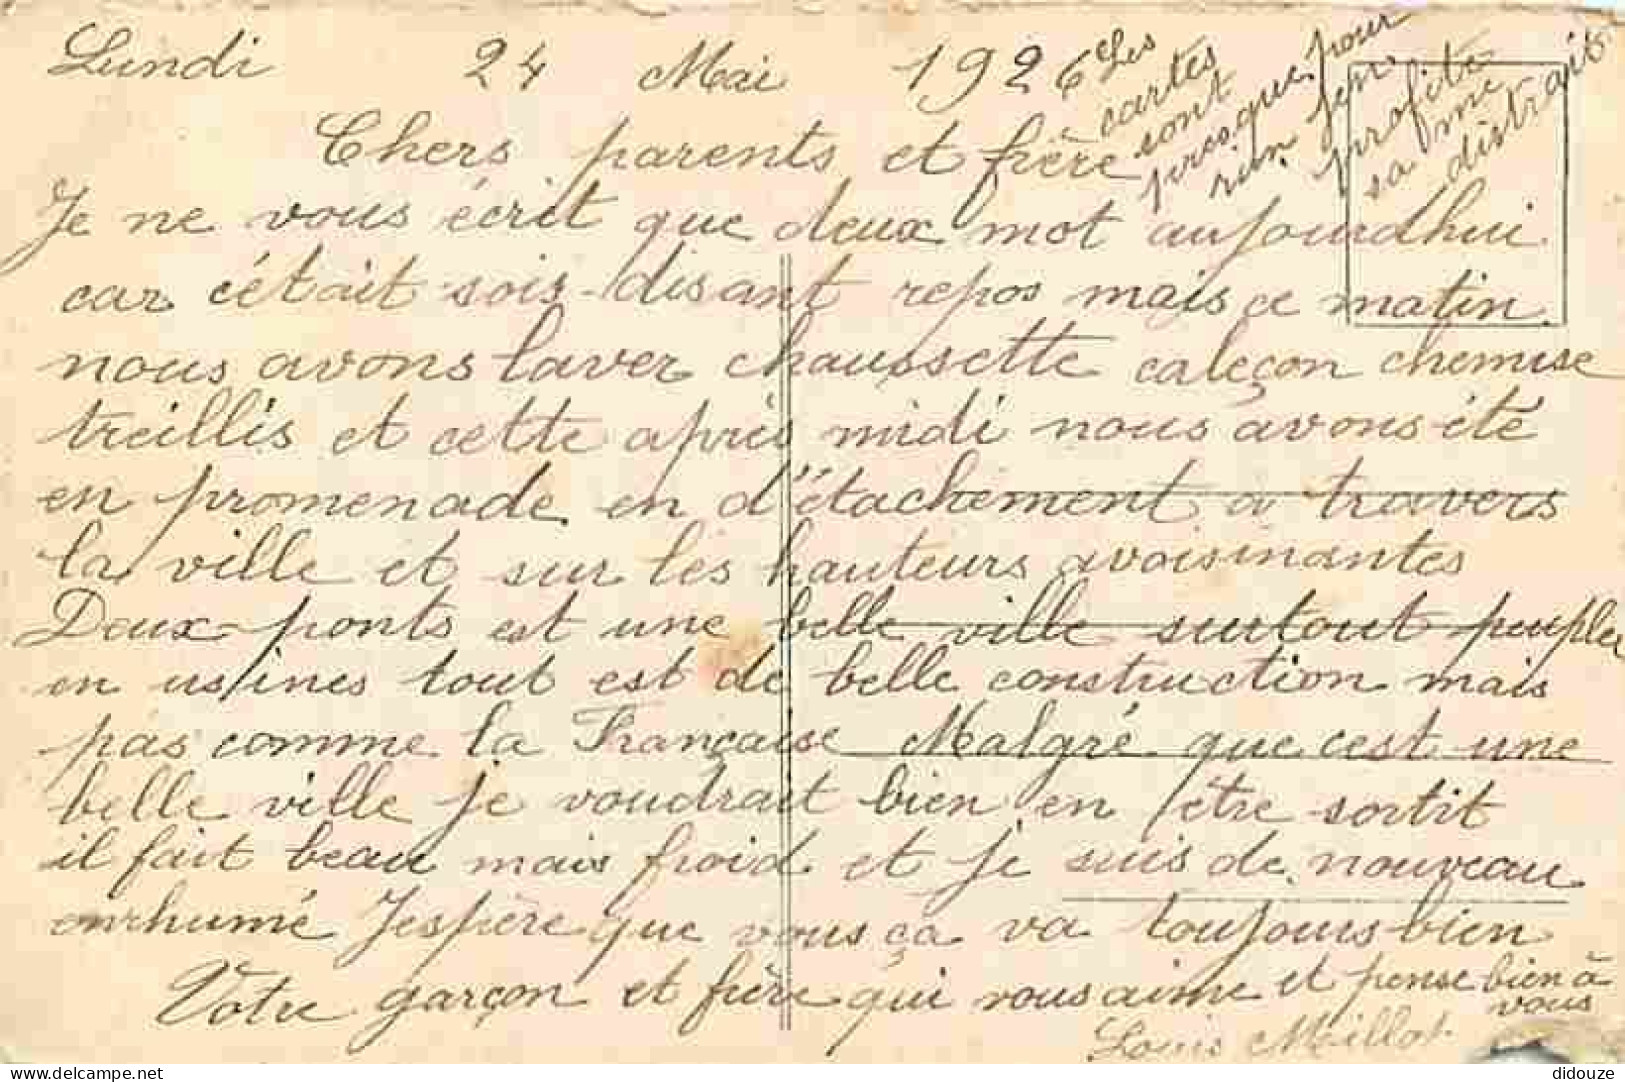 Lundi 24 Mai 1926
Chers parents et frère
Je ne vous écrit que deux mot aujourdhui
car c'était sois-disant repos mais ce matin
nous avons laver chaussette caleçon chemise
treillis et cette après midi nous avons été
en promenade en d'étachement à travers
la ville et sur les hauteurs avoisinantes
Deux-ponts est une belle ville surtout peuplée
en usines tout est de belle construction mais
pas comme la Française Malgré que cest une
belle ville je voudrait bien en être sortit
il fait beau mais froid et je suis de nouveau
enrhumé J'espère que vous ça va toujours bien
Votre garçon et frère qui vous aime et pense bien à
vous
Louis Millot
Les
cartes
sont
presque pour
rien j'en
profite
sa me
distrait.
delcampe.net
didouze